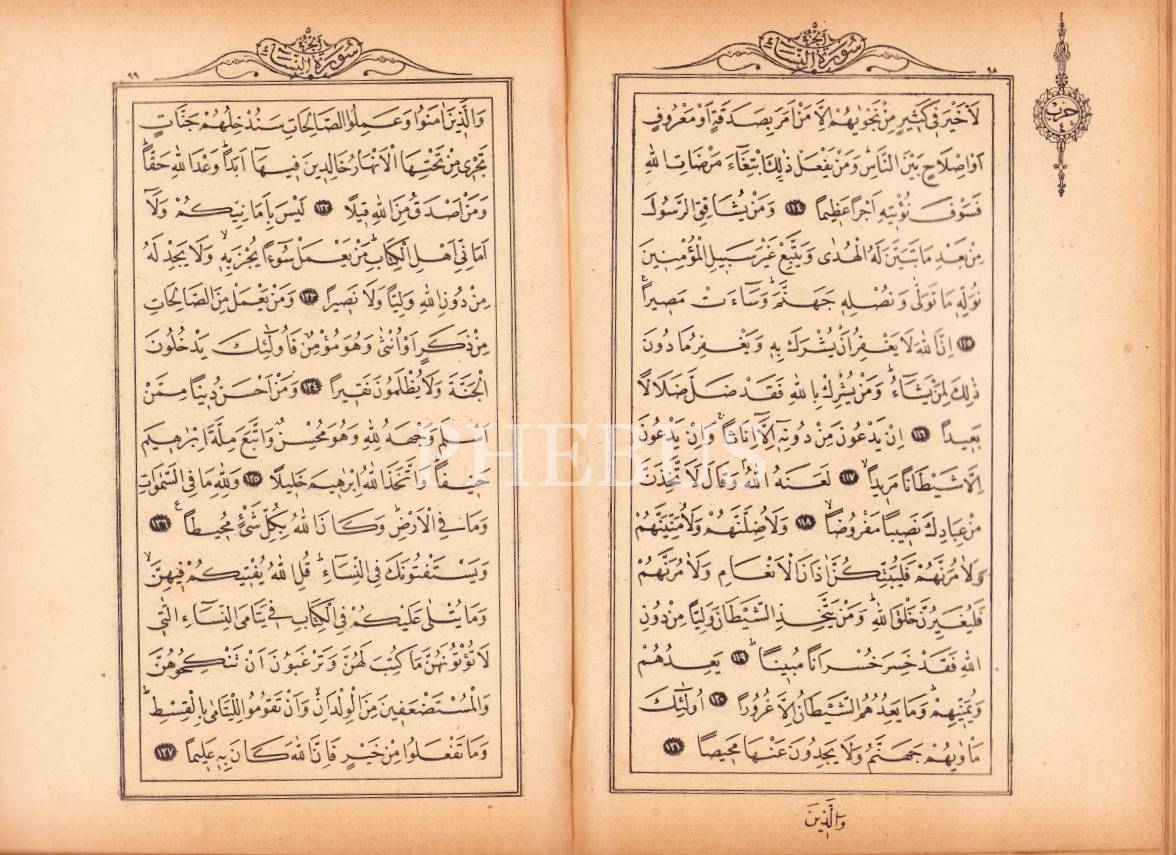 الجزء ٥
سورة النساء
٩٨
حزب
٤
لَا خَيْرَ فِى كَثِيرٍ مِنْ نَجْوٰيهُمْ اِلَّا مَنْ اَمَرَ بِصَدَقَةٍ اَوْ مَعْرُوفٍ
اَوْ اِصْلَاحٍ بَيْنَ النَّاسِ وَمَنْ يَفْعَلْ ذٰلِكَ ابْتِغَٓاءَ مَرْضَاتِ اللّٰهِ
فَسَوْفَ نُؤْتِيهِ اَجْرًا عَظِيمًا ١١٤ وَمَنْ يُشَاقِقِ الرَّسُولَ
مِنْ بَعْدِ مَا تَبَيَّنَ لَهُ الْهُدٰى وَيَتَّبِعْ غَيْرَ سَبِيلِ الْمُؤْمِنِينَ
نُوَلِّهِ مَا تَوَلّٰى وَنُصْلِهِ جَهَنَّمَ وَسَٓاءَتْ مَصِيرًا
١١٥ اِنَّ اللّٰهَ لَا يَغْفِرُ اَنْ يُشْرَكَ بِهِ وَيَغْفِرُ مَا دُونَ
ذٰلِكَ لِمَنْ يَشَٓاءُ وَمَنْ يُشْرِكْ بِاللّٰهِ فَقَدْ ضَلَّ ضَلَالًا
بَعِيدًا ١١٦ اِنْ يَدْعُونَ مِنْ دُونِهِٓ اِلَّٓا اِنَاثًا وَاِنْ يَدْعُونَ
اِلَّا شَيْطَانًا مَرِيدًا ١١٧ لَعَنَهُ اللّٰهُ وَقَالَ لَاَتَّخِذَنَّ
مِنْ عِبَادِكَ نَصِيبًا مَفْرُوضًا ١١٨ وَلَاُضِلَّنَّهُمْ وَلَاُمَنِّيَنَّهُمْ
وَلَاٰمُرَنَّهُمْ فَلَيُبَتِّكُنَّ اٰذَانَ الْاَنْعَامِ وَلَاٰمُرَنَّهُمْ
فَلَيُغَيِّرُنَّ خَلْقَ اللّٰهِ وَمَنْ يَتَّخِذِ الشَّيْطَانَ وَلِيًّا مِنْ دُونِ
اللّٰهِ فَقَدْ خَسِرَ خُسْرَانًا مُبِينًا ١١٩ يَعِدُهُمْ
وَيُمَنِّيهِمْ وَمَا يَعِدُهُمُ الشَّيْطَانُ اِلَّا غُرُورًا ١٢٠ اُولٰٓئِكَ
مَأْوٰيهُمْ جَهَنَّمُ وَلَا يَجِدُونَ عَنْهَا مَحِيصًا ١٢١
وَالَّذِينَ
الجزء ٥
سورة النساء
٩٩
وَالَّذِينَ اٰمَنُوا وَعَمِلُوا الصَّالِحَاتِ سَنُدْخِلُهُمْ جَنَّاتٍ
تَجْرِى مِنْ تَحْتِهَا الْاَنْهَارُ خَالِدِينَ فِيهَٓا اَبَدًا وَعْدَ اللّٰهِ حَقًّا
وَمَنْ اَصْدَقُ مِنَ اللّٰهِ قِيلًا ١٢٢ لَيْسَ بِاَمَانِيِّكُمْ وَلَٓا
اَمَانِىِّ اَهْلِ الْكِتَابِ مَنْ يَعْمَلْ سُٓوءًا يُجْزَ بِهِ وَلَا يَجِدْ لَهُ
مِنْ دُونِ اللّٰهِ وَلِيًّا وَلَا نَصِيرًا ١٢٣ وَمَنْ يَعْمَلْ مِنَ الصَّالِحَاتِ
مِنْ ذَكَرٍ اَوْ اُنْثٰى وَهُوَ مُؤْمِنٌ فَاُولٰٓئِكَ يَدْخُلُونَ
الْجَنَّةَ وَلَا يُظْلَمُونَ نَقِيرًا ١٢٤ وَمَنْ اَحْسَنُ دِينًا مِمَّنْ
اَسْلَمَ وَجْهَهُ لِلّٰهِ وَهُوَ مُحْسِنٌ وَاتَّبَعَ مِلَّةَ اِبْرٰهِيمَ
حَنِيفًا وَاتَّخَذَ اللّٰهُ اِبْرٰهِيمَ خَلِيلًا ١٢٥ وَلِلّٰهِ مَا فِى السَّمٰوَاتِ
وَمَا فِى الْاَرْضِ وَكَانَ اللّٰهُ بِكُلِّ شَىْءٍ مُحِيطًا ١٢٦
وَيَسْتَفْتُونَكَ فِى النِّسَٓاءِ قُلِ اللّٰهُ يُفْتِيكُمْ فِيهِنَّ
وَمَا يُتْلٰى عَلَيْكُمْ فِى الْكِتَابِ فِى يَتَامَى النِّسَٓاءِ الّٰتِى
لَا تُؤْتُونَهُنَّ مَا كُتِبَ لَهُنَّ وَتَرْغَبُونَ اَنْ تَنْكِحُوهُنَّ
وَالْمُسْتَضْعَفِينَ مِنَ الْوِلْدَانِ وَاَنْ تَقُومُوا لِلْيَتَامٰى بِالْقِسْطِ
وَمَا تَفْعَلُوا مِنْ خَيْرٍ فَاِنَّ اللّٰهَ كَانَ بِهِ عَلِيمًا ١٢٧
PHEBUS